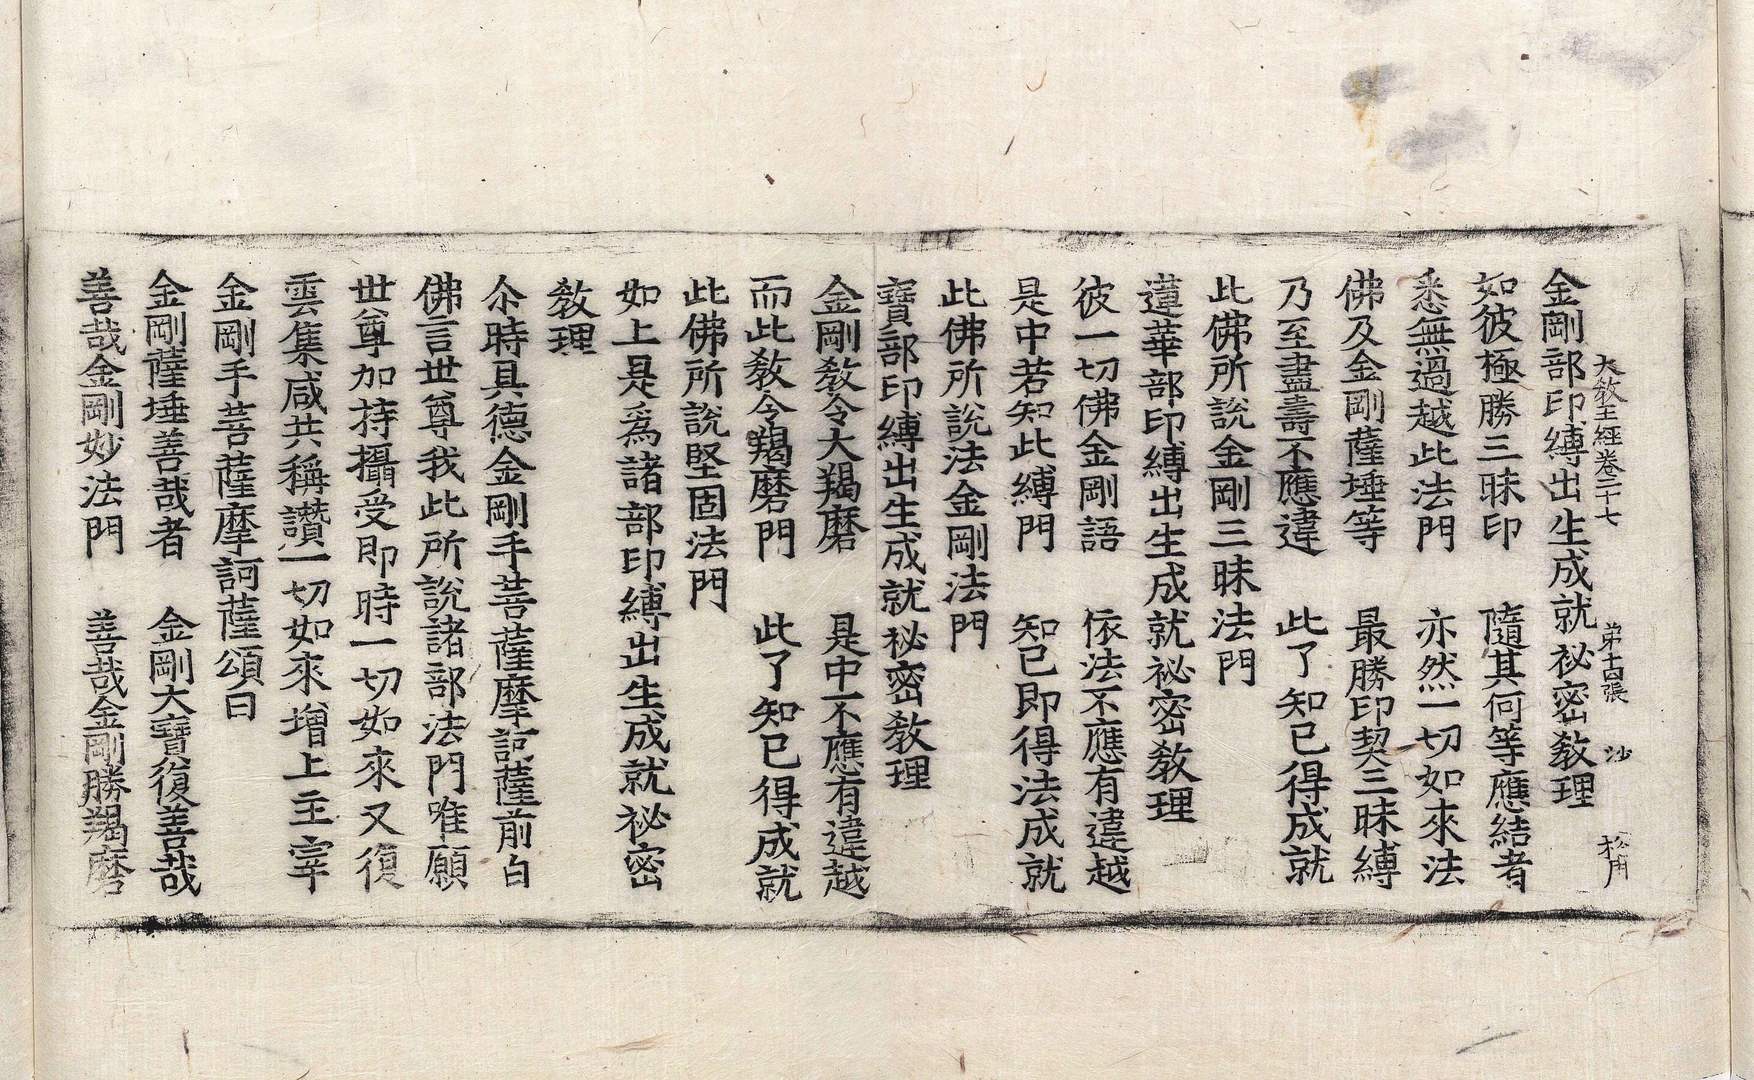 大敎王經卷二十七 第十四張 沙
金剛部印縛出生成就祕密敎理
如彼極勝三昧印 隨其何等應結者
悉無過越此法門 亦然一切如來法
佛及金剛薩埵等 最勝印契三昧縛
乃至盡壽不應違 此了知已得成就
此佛所說金剛三昧法門
蓮華部印縛出生成就祕密敎理
彼一切佛金剛語 依法不應有違越
是中若知此縛門 知已即得法成就
此佛所說法金剛法門
寶部印縛出生成就祕密敎理
金剛敎令大羯磨 是中不應有違越
而此敎令羯磨門 此了知已得成就
此佛所說堅固法門
如上是爲諸部印縛出生成就祕密
敎理
尒時具德金剛手菩薩摩訶薩前白
佛言世尊我此所說諸部法門唯願
世尊加持攝受即時一切如來又復
雲集咸共稱讚一切如來增上主宰
金剛手菩薩摩訶薩頌曰
金剛薩埵善哉者 金剛大寶復善哉
善哉金剛妙法門 善哉金剛勝羯磨